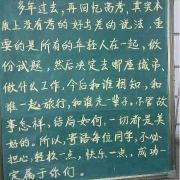 多年过去,再回忆高考,其实本
质上没有考的好与差的说法,重
要的是所有的年轻人在一起,做
份试题,然后决定去哪座城市,
做什么工作,今后和谁相知,和
谁一起旅行,和谁走一辈子,不管故
事怎样,结局如何,一切都是美
好的。所以,寄语每位同学,不必
担心,轻松一点,快乐一点,成功一
定属于你们。